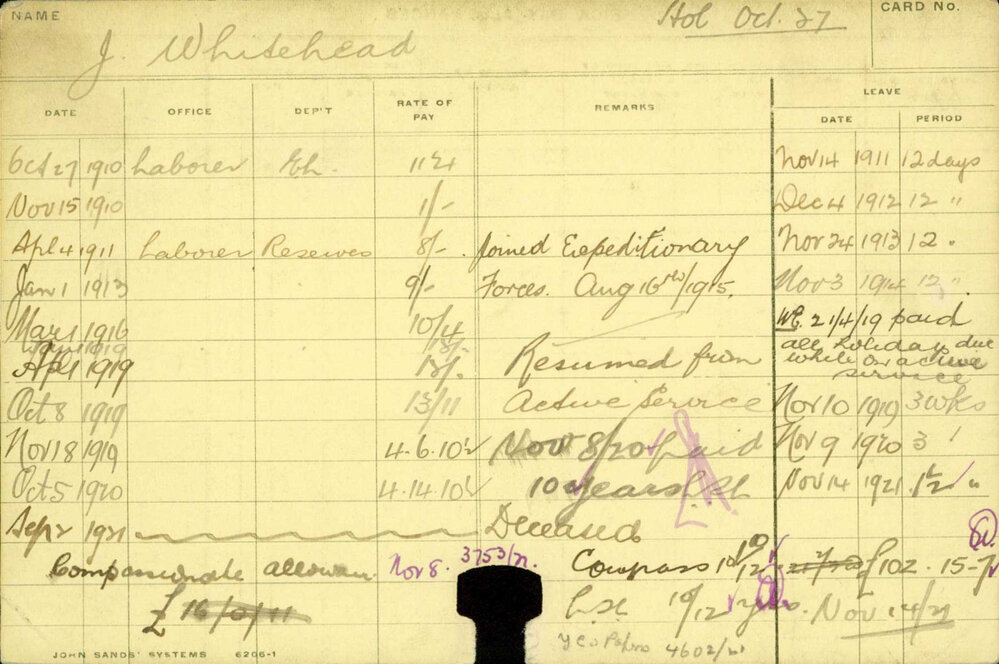 NAME
Hol Oct. 27
CARD No.
J. Whitehead
DATE OFFICE DEP'T RATE OF PAY REMARKS LEAVE
DATE PERIOD
Oct 27 1910 Laborer Eh. Nov 14 1911 12 days
Nov 15 1910 1/- Dec 4 1912 12 "
Apl 4 1911 Laborer Reserves 8/- Joined Expeditionary Nov 24 1913 12 "
Jan 1 1913 9/- Forces. Aug 16th/1915. Nov 3 1914 12 "
Mar 1 1916 10/4 WE. 21/4/19 paid
all holidays due
Apl 1 1919 13/- Resumed from while on active
service
Oct 8 1919 13/11 Active Service Nov 10 1919 3 wks
Nov 18 1919 4.6.10½ Nov 8/20 paid Nov 9 1920 3 "
Oct 5 1920 4.14.10½ 10 years Nov 14 1921 1½ "
Sep 2 1921 Deceased
Compassionate allowan. Nov 8. 3753/21. Compass 10 10/12 £102.15-7
£ 16/0/11 10/12 yrs. Nov 14/21
yes Papers 4602/21
JOHN SANDS' SYSTEMS 6206-1